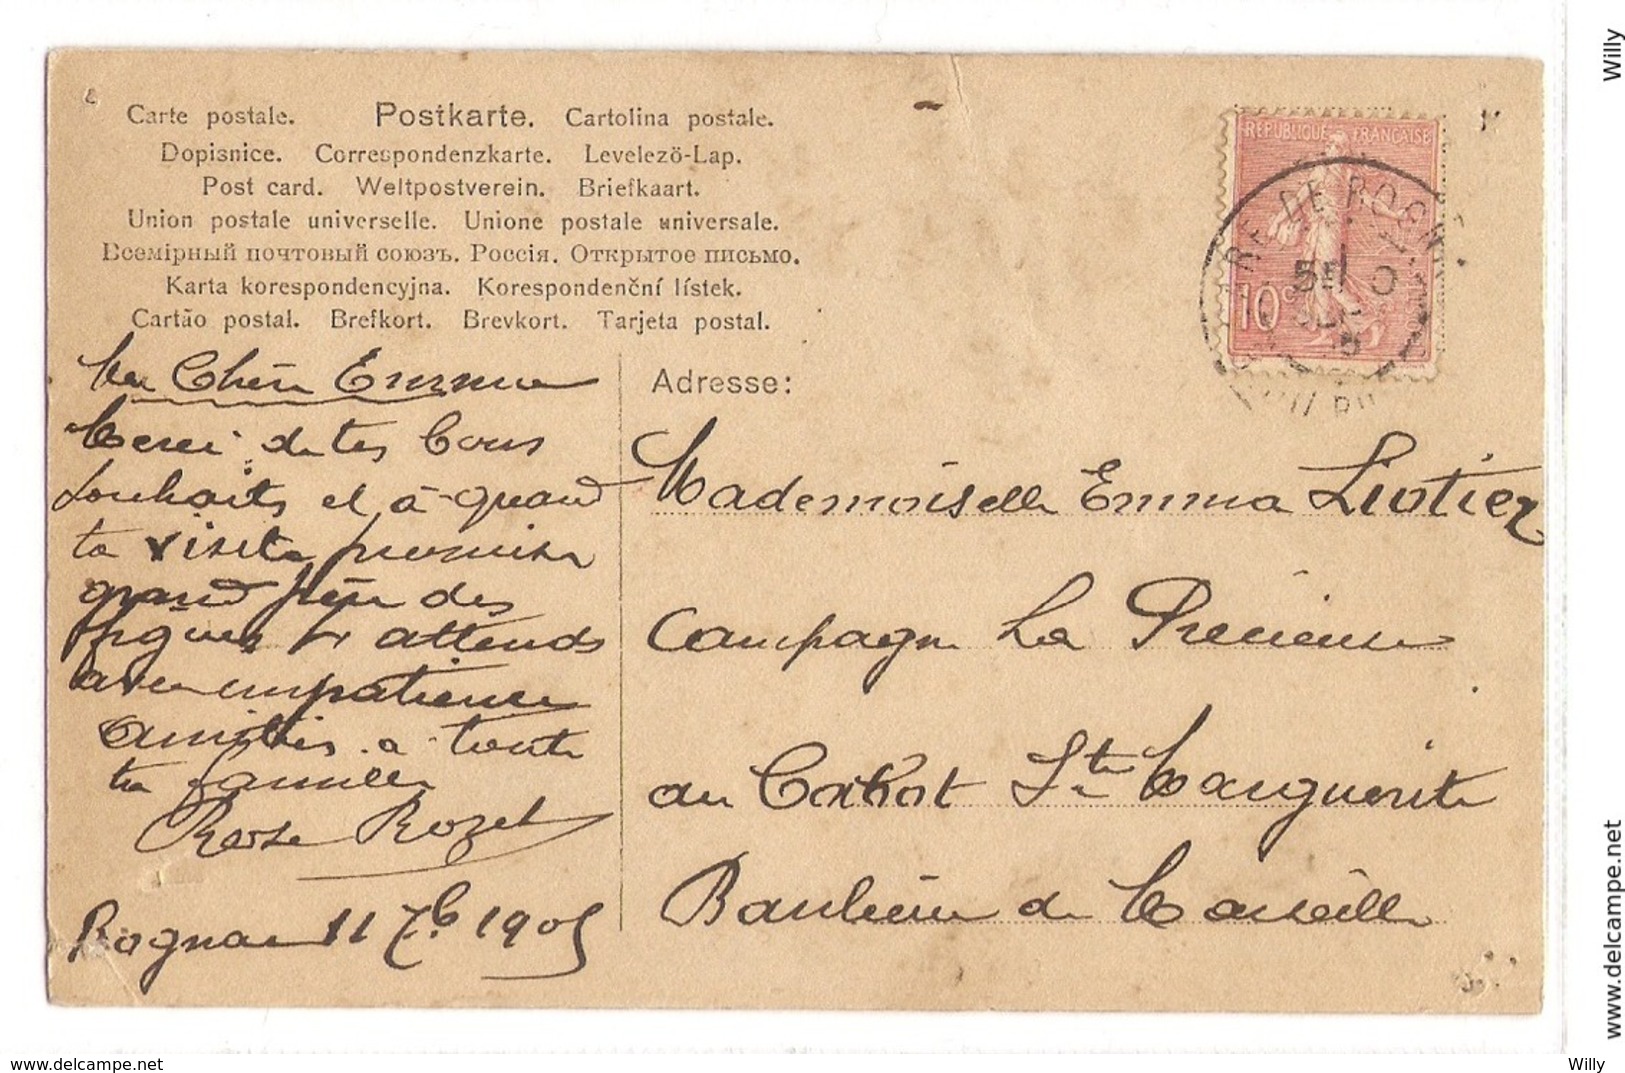 Carte postale. Postkarte. Cartolina postale.
Dopisnice. Correspondenzkarte. Levelezö-Lap.
Post card. Weltpostverein. Briefkaart.
Union postale universelle. Unione postale universale.
Всемірный почтовый союзъ. Россія. Открытое письмо.
Karta korespondencyjna. Korespondenční lístek.
Cartão postal. Brefkort. Brevkort. Tarjeta postal.
REPUBLIQUE FRANÇAISE
10c
Ma Chère Emma
Merci de tes bons
souhaits et à quand
ta visite promise
grand père des
figues t'attends
avec impatience
amitiés a toute
ta famille
Rose Rozet
Rognac 11 7b 1905
Adresse:
Mademoiselle Emma Liotier
Campagne La Précieuse
au Cabot Ste Marguerite
Banlieue de Marseille
Willy
www.delcampe.net
www.delcampe.net
Willy